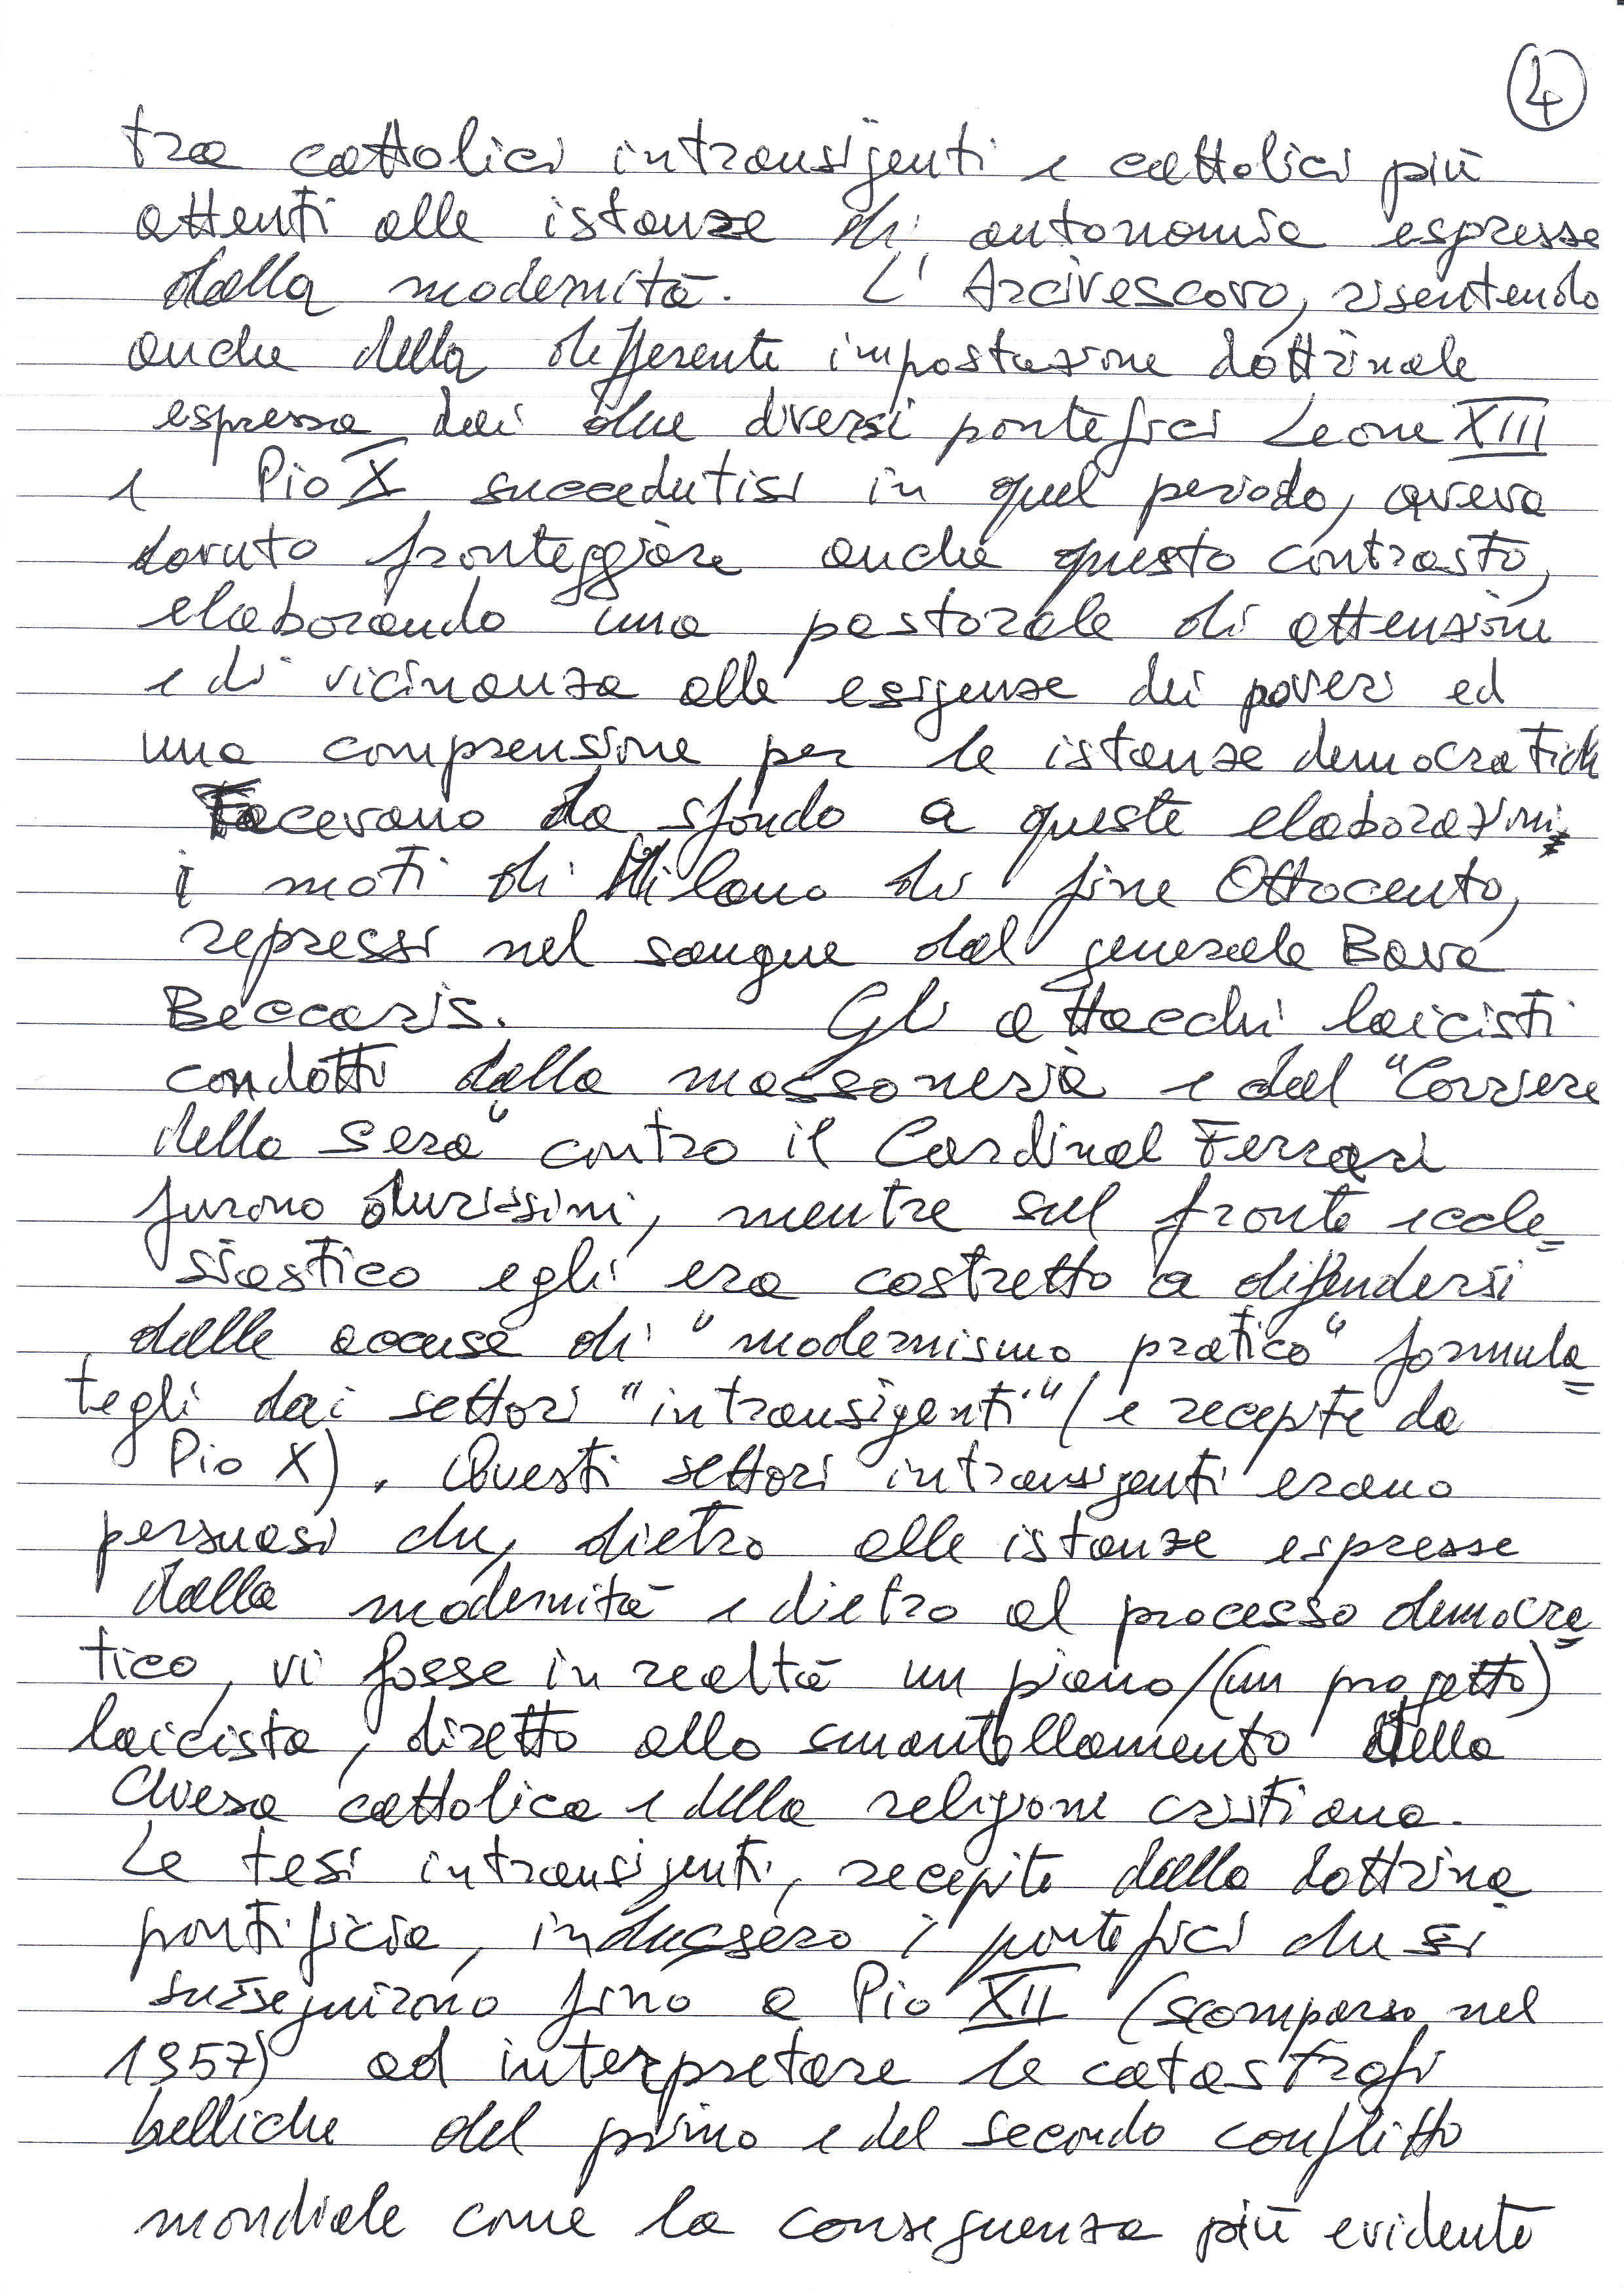 4
tra cattolici intransigenti e cattolici più
attenti alle istanze di autonomia espresse
dalla modernità. L'Arcivescovo, risentendo
anche della differente impostazione dottrinale
espressa dai due diversi pontefici Leone XIII
e Pio X succedutisi in quel periodo, aveva
dovuto fronteggiare anche questo contrasto,
elaborando una pastorale di attenzione
e di vicinanza alle esigenze dei poveri ed
una comprensione per le istanze democratiche
Facevano da sfondo a queste elaborazioni
i moti di Milano di fine Ottocento,
repressi nel sangue dal generale Bava
Beccaris. Gli attacchi laicisti
condotti dalla massoneria e dal "Corriere
della Sera" contro il Cardinal Ferrari
furono durissimi, mentre sul fronte eccle=
siastico egli era costretto a difendersi
dalle accuse di "modernismo pratico" formula=
tegli dai settori "intransigenti" (e recepite da
Pio X). Questi settori intransigenti erano
persuasi che, dietro alle istanze espresse
dalla modernità e dietro al processo democra=
tico, vi fosse in realtà un piano/(un progetto)
laicista, diretto allo smantellamento della
Chiesa cattolica e della religione cristiana.
Le tesi intransigenti, recepite dalla dottrina
pontificia, indussero i pontefici che si
susseguirono fino a Pio XII (scomparso nel
1957) ad interpretare le catastrofi
belliche del primo e del secondo conflitto
mondiale come la conseguenza più evidente